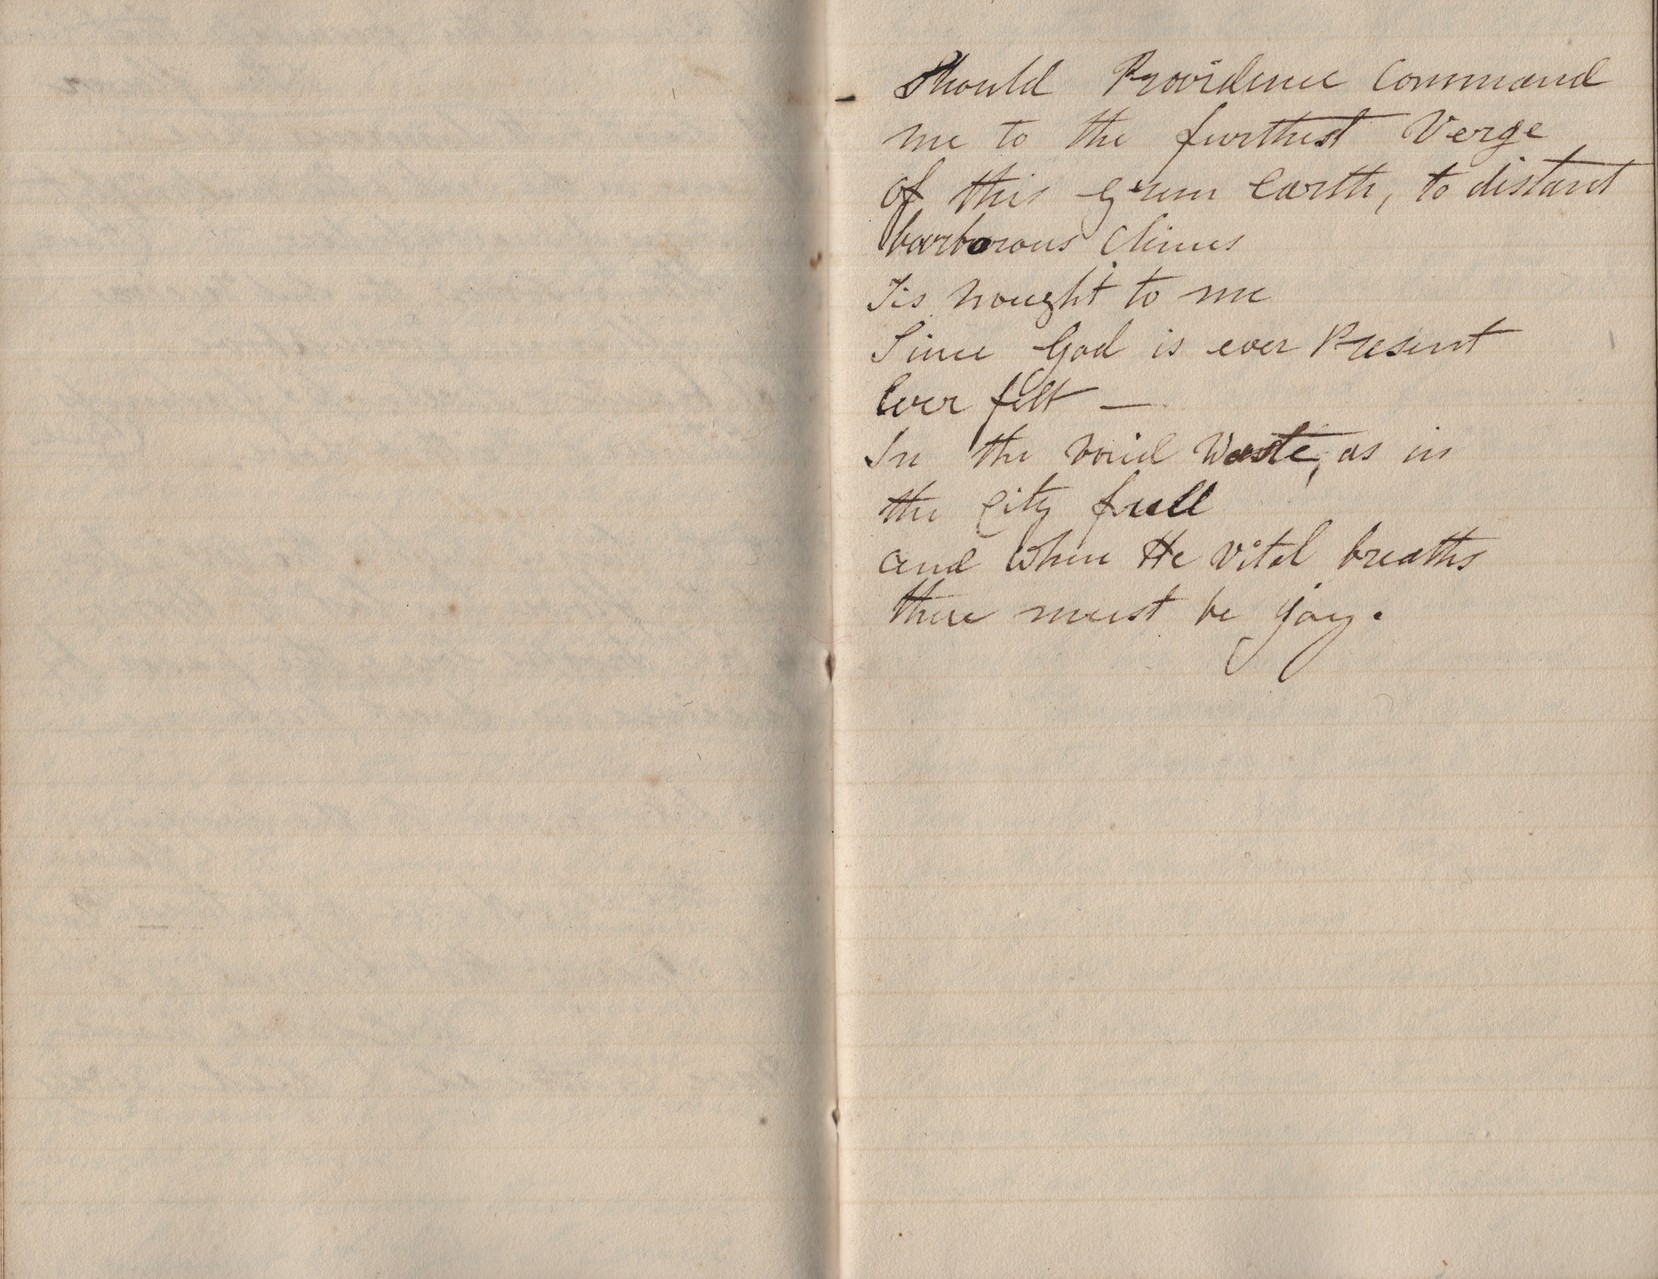 Should Providence Command
me to the furthest Verge
of this green Earth, to distant
barborous Climes
Tis nought to me
Since God is ever Present
Ever felt —
In the void Waste, as in
the City full
and When He vital breaths
there must be joy.